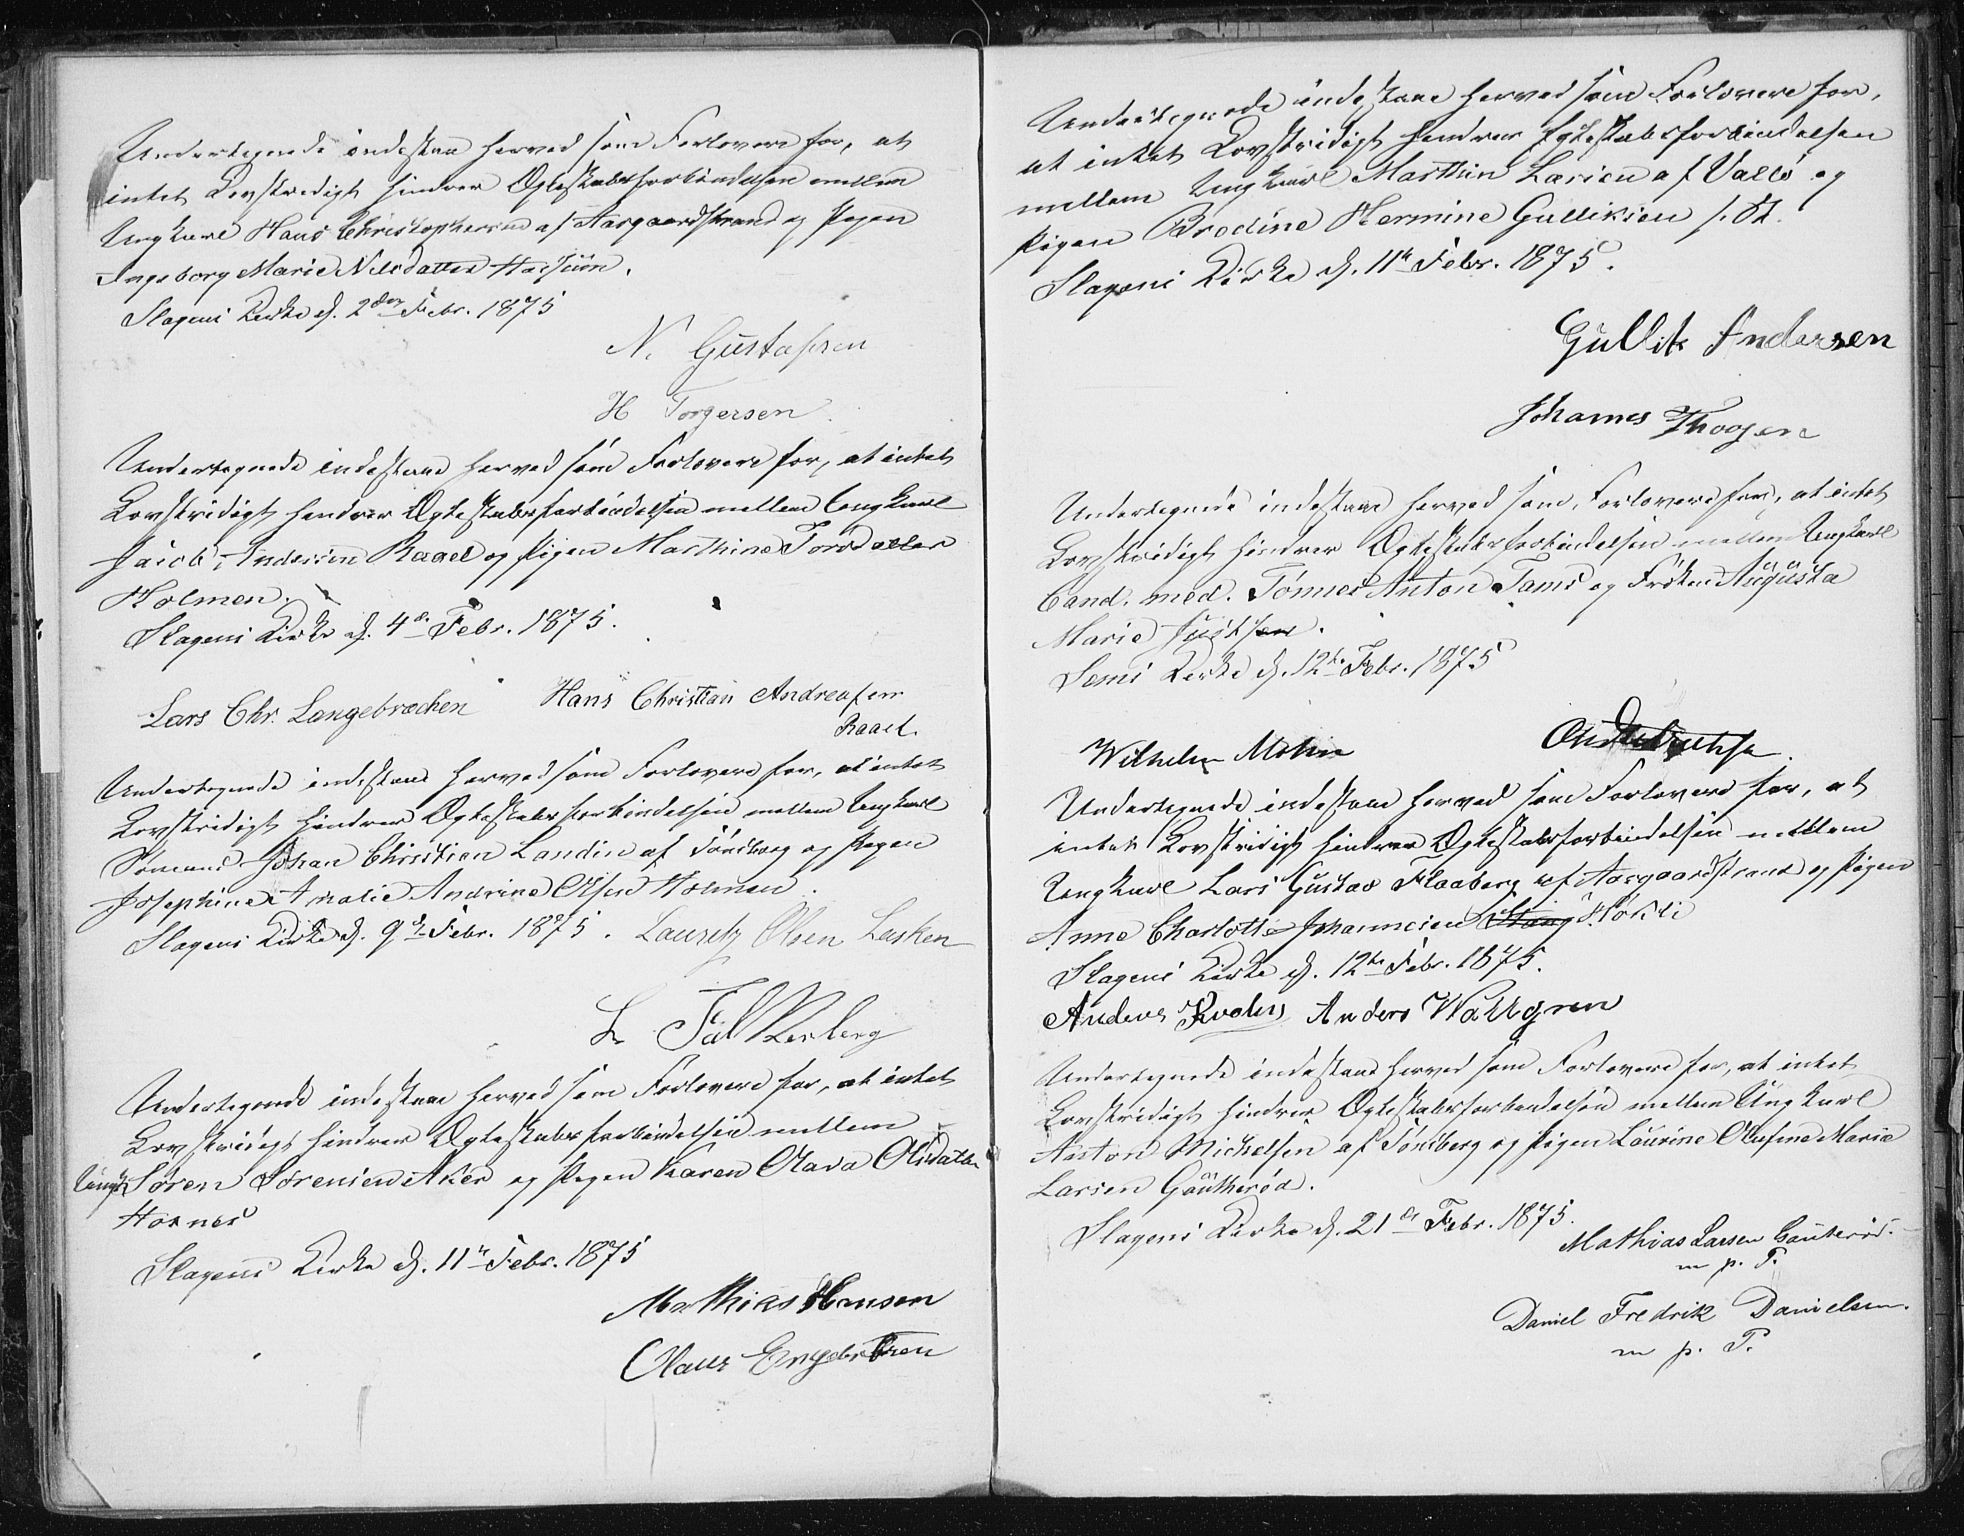 Undertegnede indestaa herved som Forlovere for, at
intet Lovstridigt hindrer Ægteskabsforbindelsen mellem
Ungkarl Hans Christophersen af Aasgaardstrand og Pigen
Ingeborg Marie Nilsdatter
Slagens Kirke d. 2den Febr. 1875
N. Gustafsen
H Torgersen
Undertegnede indestaae herved som Forlovere for, at intet
Lovstridigt hindrer Ægteskabsforbindelsen mellem Ungkarl
Jacob Andersen Raael og Pigen Mathine Torsdatter
Holmen.
Slagens Kirke d. 4de Febr. 1875.
Lars Chr. Langebrechen Hans Christian Andreasen
Raael.
Undertegnede indestaae herved som Forlovere for, at intet
Lovstridigt hindrer Ægteskabsforbindelsen mellem Ungkarl
Sømand Johan Christian Landin af Tönsberg og Pigen
Josephine Amalie Andrine Olsen Holmen.
Slagens Kirke d. 9de Febr. 1875. Lauritz Olsen Lasken
L. Falkenberg
Undertegnede indestaae herved som Forlovere for, at intet
Lovstridigt hindrer Ægteskabsforbindelsen mellem
Ungk. Sören Sörensen Aker og Pigen Karen Olava Olsdatter
Hornes
Slagens Kirke d. 11te Febr. 1875
Mathias Hansen
Olaus Engebretsen
Undertegnede indestaae herved som Forlovere for,
at intet Lovstridigt hindrer Egteskabsforbindelsen
mellem Ungkarl Marthin Larsen af Vallö og
Pigen Brodine Hermine Gulliksen
Slagens Kirke d. 11te Febr. 1875.
Gullik Andersen
Johannes Thogen
Undertegnede indestaae herved som Forlovere for, at intet
Lovstridigt hindrer Ægteskabsforbindelsen mellem Ungkarl
Cand. med. Tönnes Anton Tams og Fröken Augusta
Marie
Sems Kirke d. 12te Febr. 1875
Wilhelm Mohn
Undertegnede indestaae herved som Forlovere for, at
intet Lovstridigt hindrer Ægteskabsforbindelsen mellem
Ungkarl Lars Gustav Flaaberg af Aasgaardstrand og Pigen
Anne Charlotte Johannesen Stang
Slagens Kirke d. 12te Febr. 1875.
Anders Anders Wallgren
Undertegnede indestaae herved som Forlovere for, at intet
Lovstridigt hindrer Ægteskabsforbindelsen mellem Ungkarl
Anton Michelsen af Tönsberg og Pigen Laurine Olufine Marie
Larsen Gautheröd.
Slagens Kirke d. 21de Febr. 1875.
Mathias Larsen Gauteröd.
m. p. P.
Daniel Fredrik Danielsen.
m. p. P.